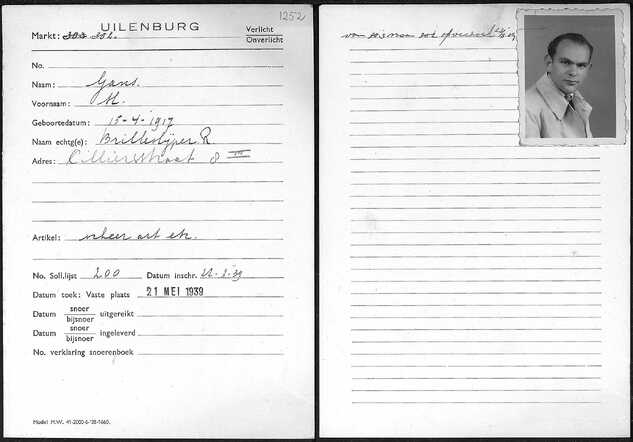 1252
UILENBURG
Markt: 302.
Verlicht
Onverlicht
No.
Naam: Gans.
Voornaam: M.
Geboortedatum: 15-4-1917
Naam echtg(e): Brilleslijper R.
Adres: Cilliersstraat 8 III
Artikel: etc.
No. Soll.lijst 200 Datum inschr.
Datum toek: Vaste plaats 21 MEI 1939
Datum snoer/bijsnoer uitgereikt
Datum snoer/bijsnoer ingeleverd
No. verklaring snoerenboek
Model M.W. 41-2000-6-'38-1660.
van